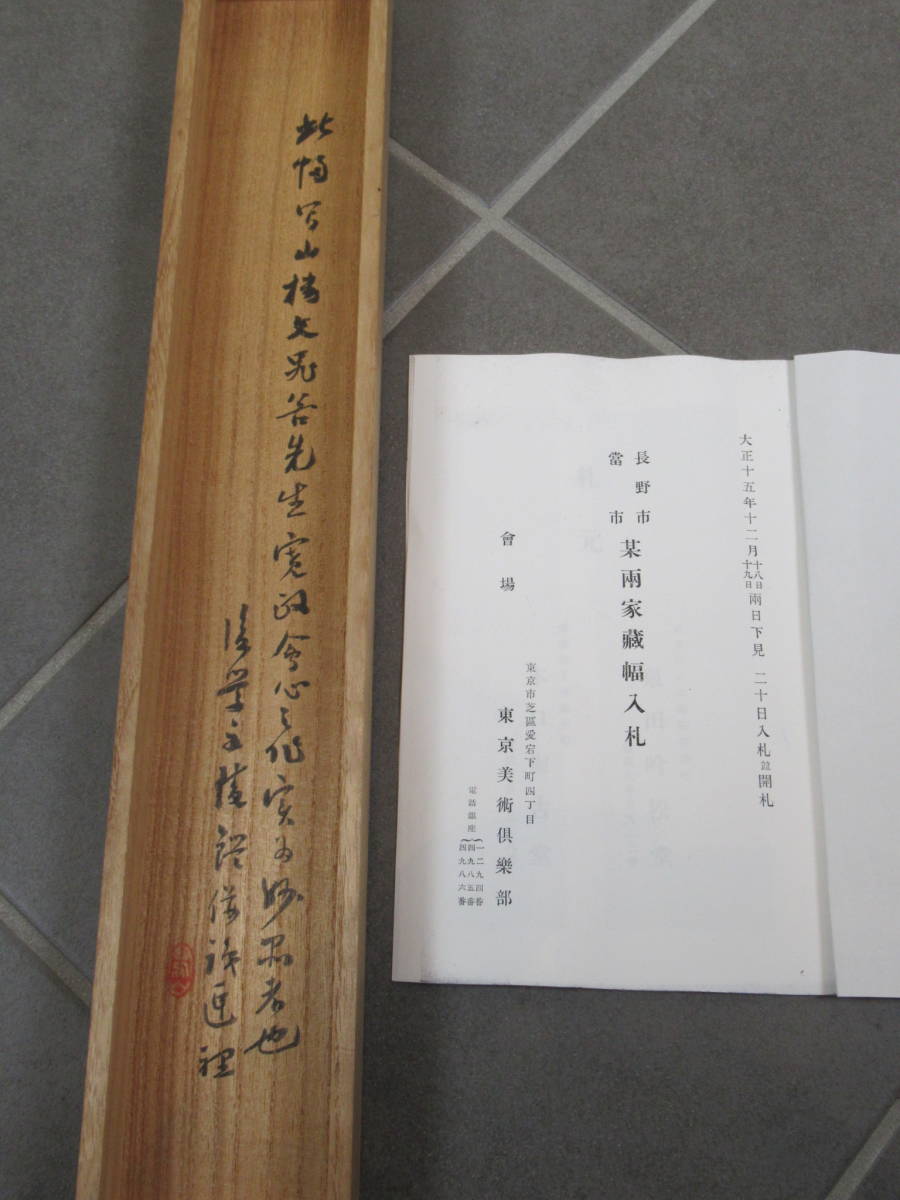 此幅写山楼文晁谷先生寛政会心之作実為妙品者也
後学

大正十五年十二月十八日十九日兩日下見 二十日入札竝開札
長野市
當市
某兩家藏幅入札
會場
東京市芝區愛宕下町四丁目
東京美術倶樂部
電話銀座
一二九四番
四九八五番
四九八六番